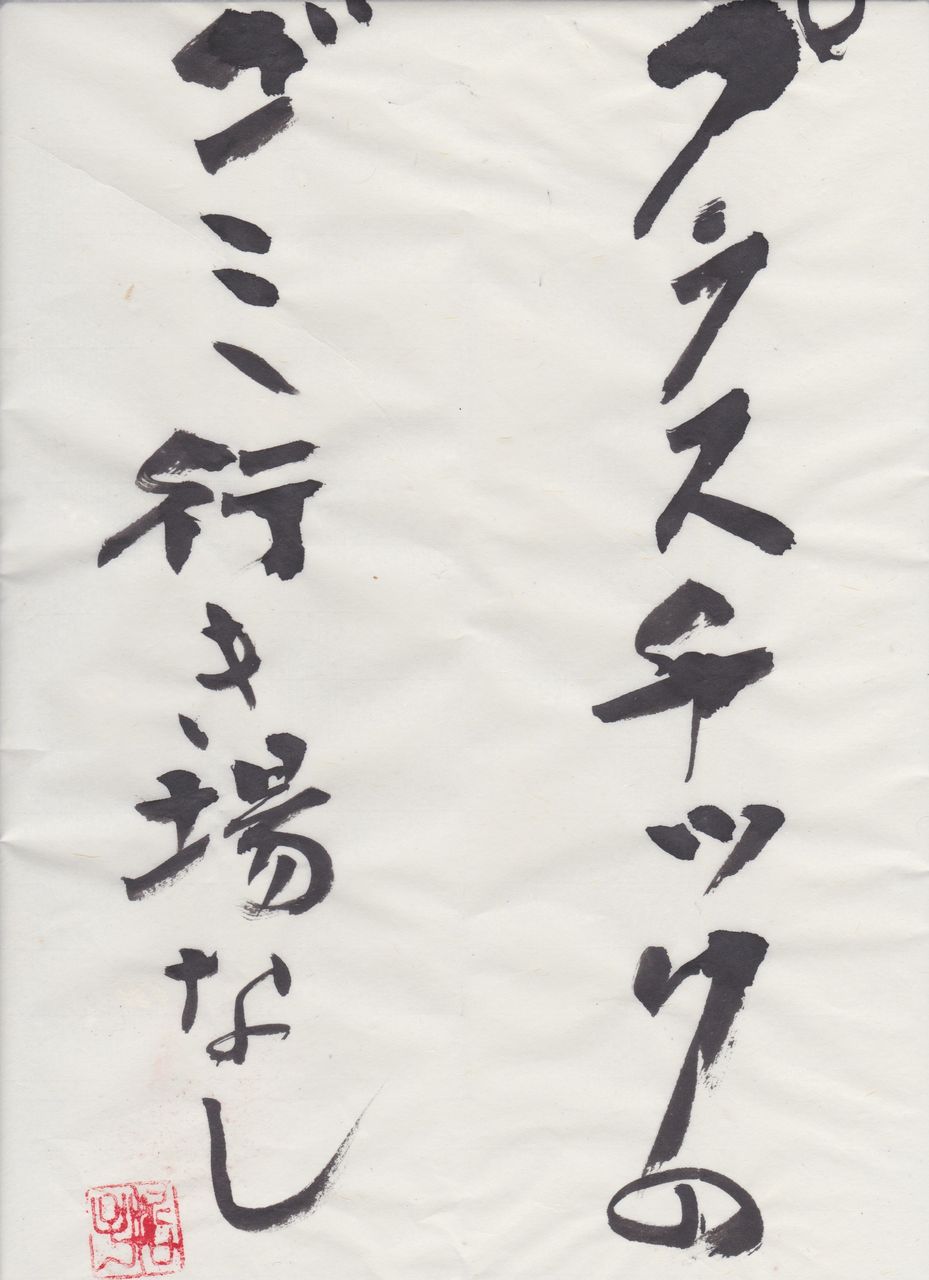 プラスチックの
ゴミ行き場なし